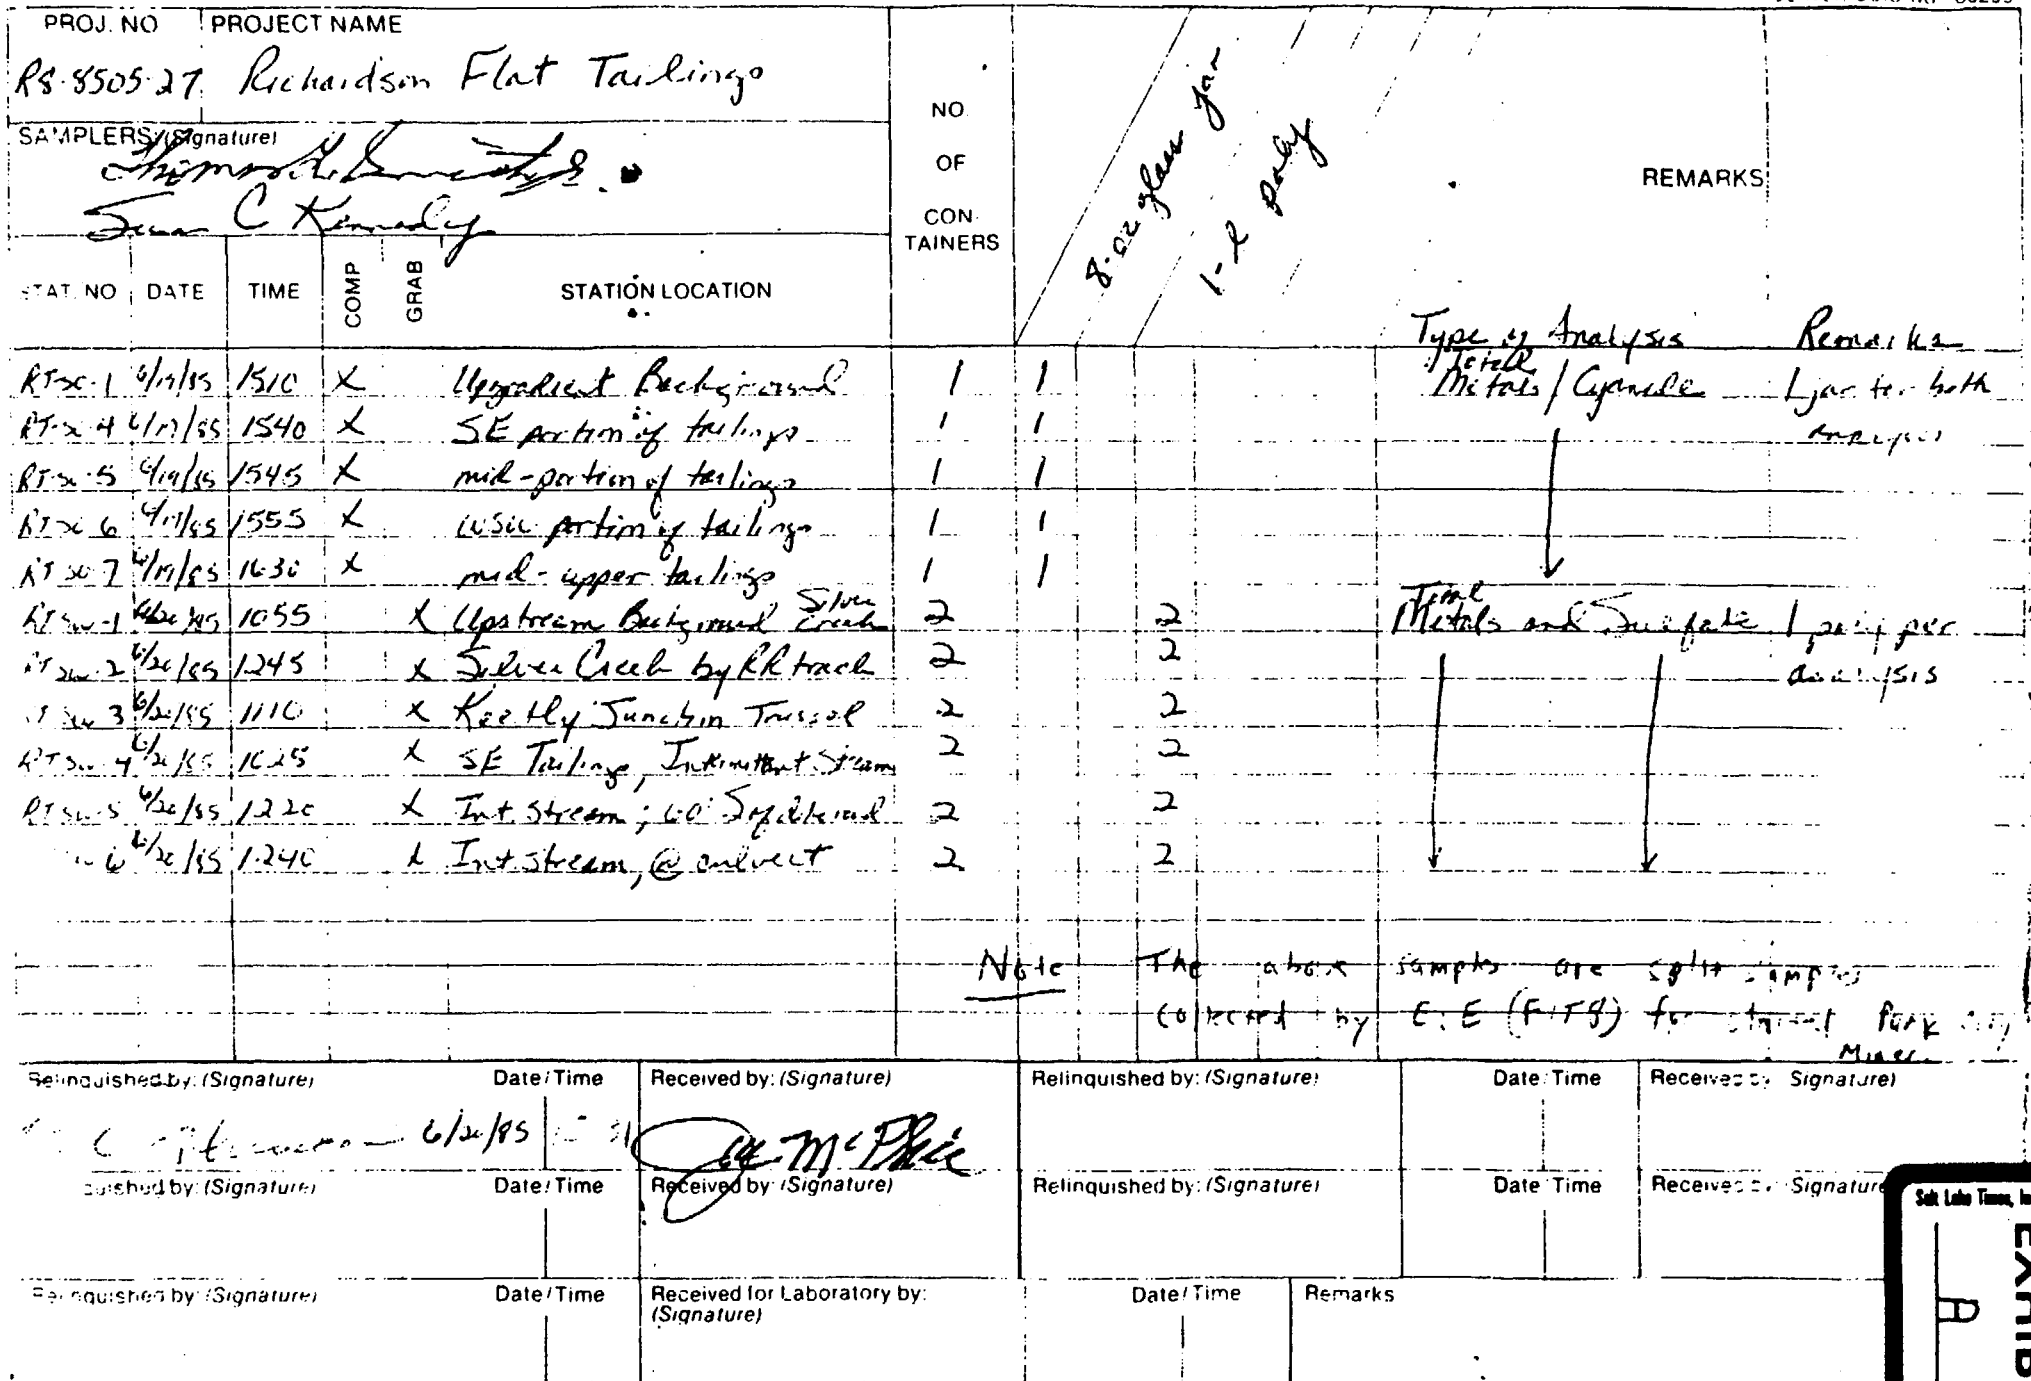 PROJ. NO PROJECT NAME
RS-8505-27 Richardson Flat Tailings
SAMPLERS: (Signature)
C Kennedy
NO. OF CON- TAINERS
8-oz glass jar
1-l poly
REMARKS
STAT. NO DATE TIME COMP GRAB STATION LOCATION
Type of Analysis Remarks
RT-SO-1 6/19/85 1510 X Upgradient Background 1 1 Total Metals / Cyanide 1 jar for both
RT-SO-4 6/19/85 1540 X SE portion of tailings 1 1 analysis
RT-SO-5 6/19/85 1545 X mid-portion of tailings 1 1
RT-SO-6 6/19/85 1555 X WSW portion of tailings 1 1
RT-SO-7 6/19/85 1630 X mid-upper tailings 1 1
RT-SW-1 6/20/85 1055 X Upstream Background Silver Creek 2 2 Total Metals and Sulfate 1 poly per
RT-SW-2 6/20/85 1245 X Silver Creek by RR track 2 2 analysis
SW-3 6/20/85 1110 X Keetly Junction Trussel 2 2
RT-SW-4 6/20/85 1025 X SE Tailings, Intermittent Stream 2 2
RT-SW-5 6/20/85 1220 X Int. Stream; 60' 2 2
6 6/20/85 1240 X Int. Stream, @ culvert 2 2
Note The above samples are split samples
collected by E & E (FIT 8) for Park City
Mines
Relinquished by: (Signature) Date/Time Received by: (Signature) Relinquished by: (Signature) Date/Time Received by: (Signature)
6/20/85 McPhie
quished by: (Signature) Date/Time Received by: (Signature) Relinquished by: (Signature) Date/Time Received by: Signature
Salt Lake Times, In
EXHIB
A
Relinquished by: (Signature) Date/Time Received for Laboratory by: Date/Time Remarks
(Signature)